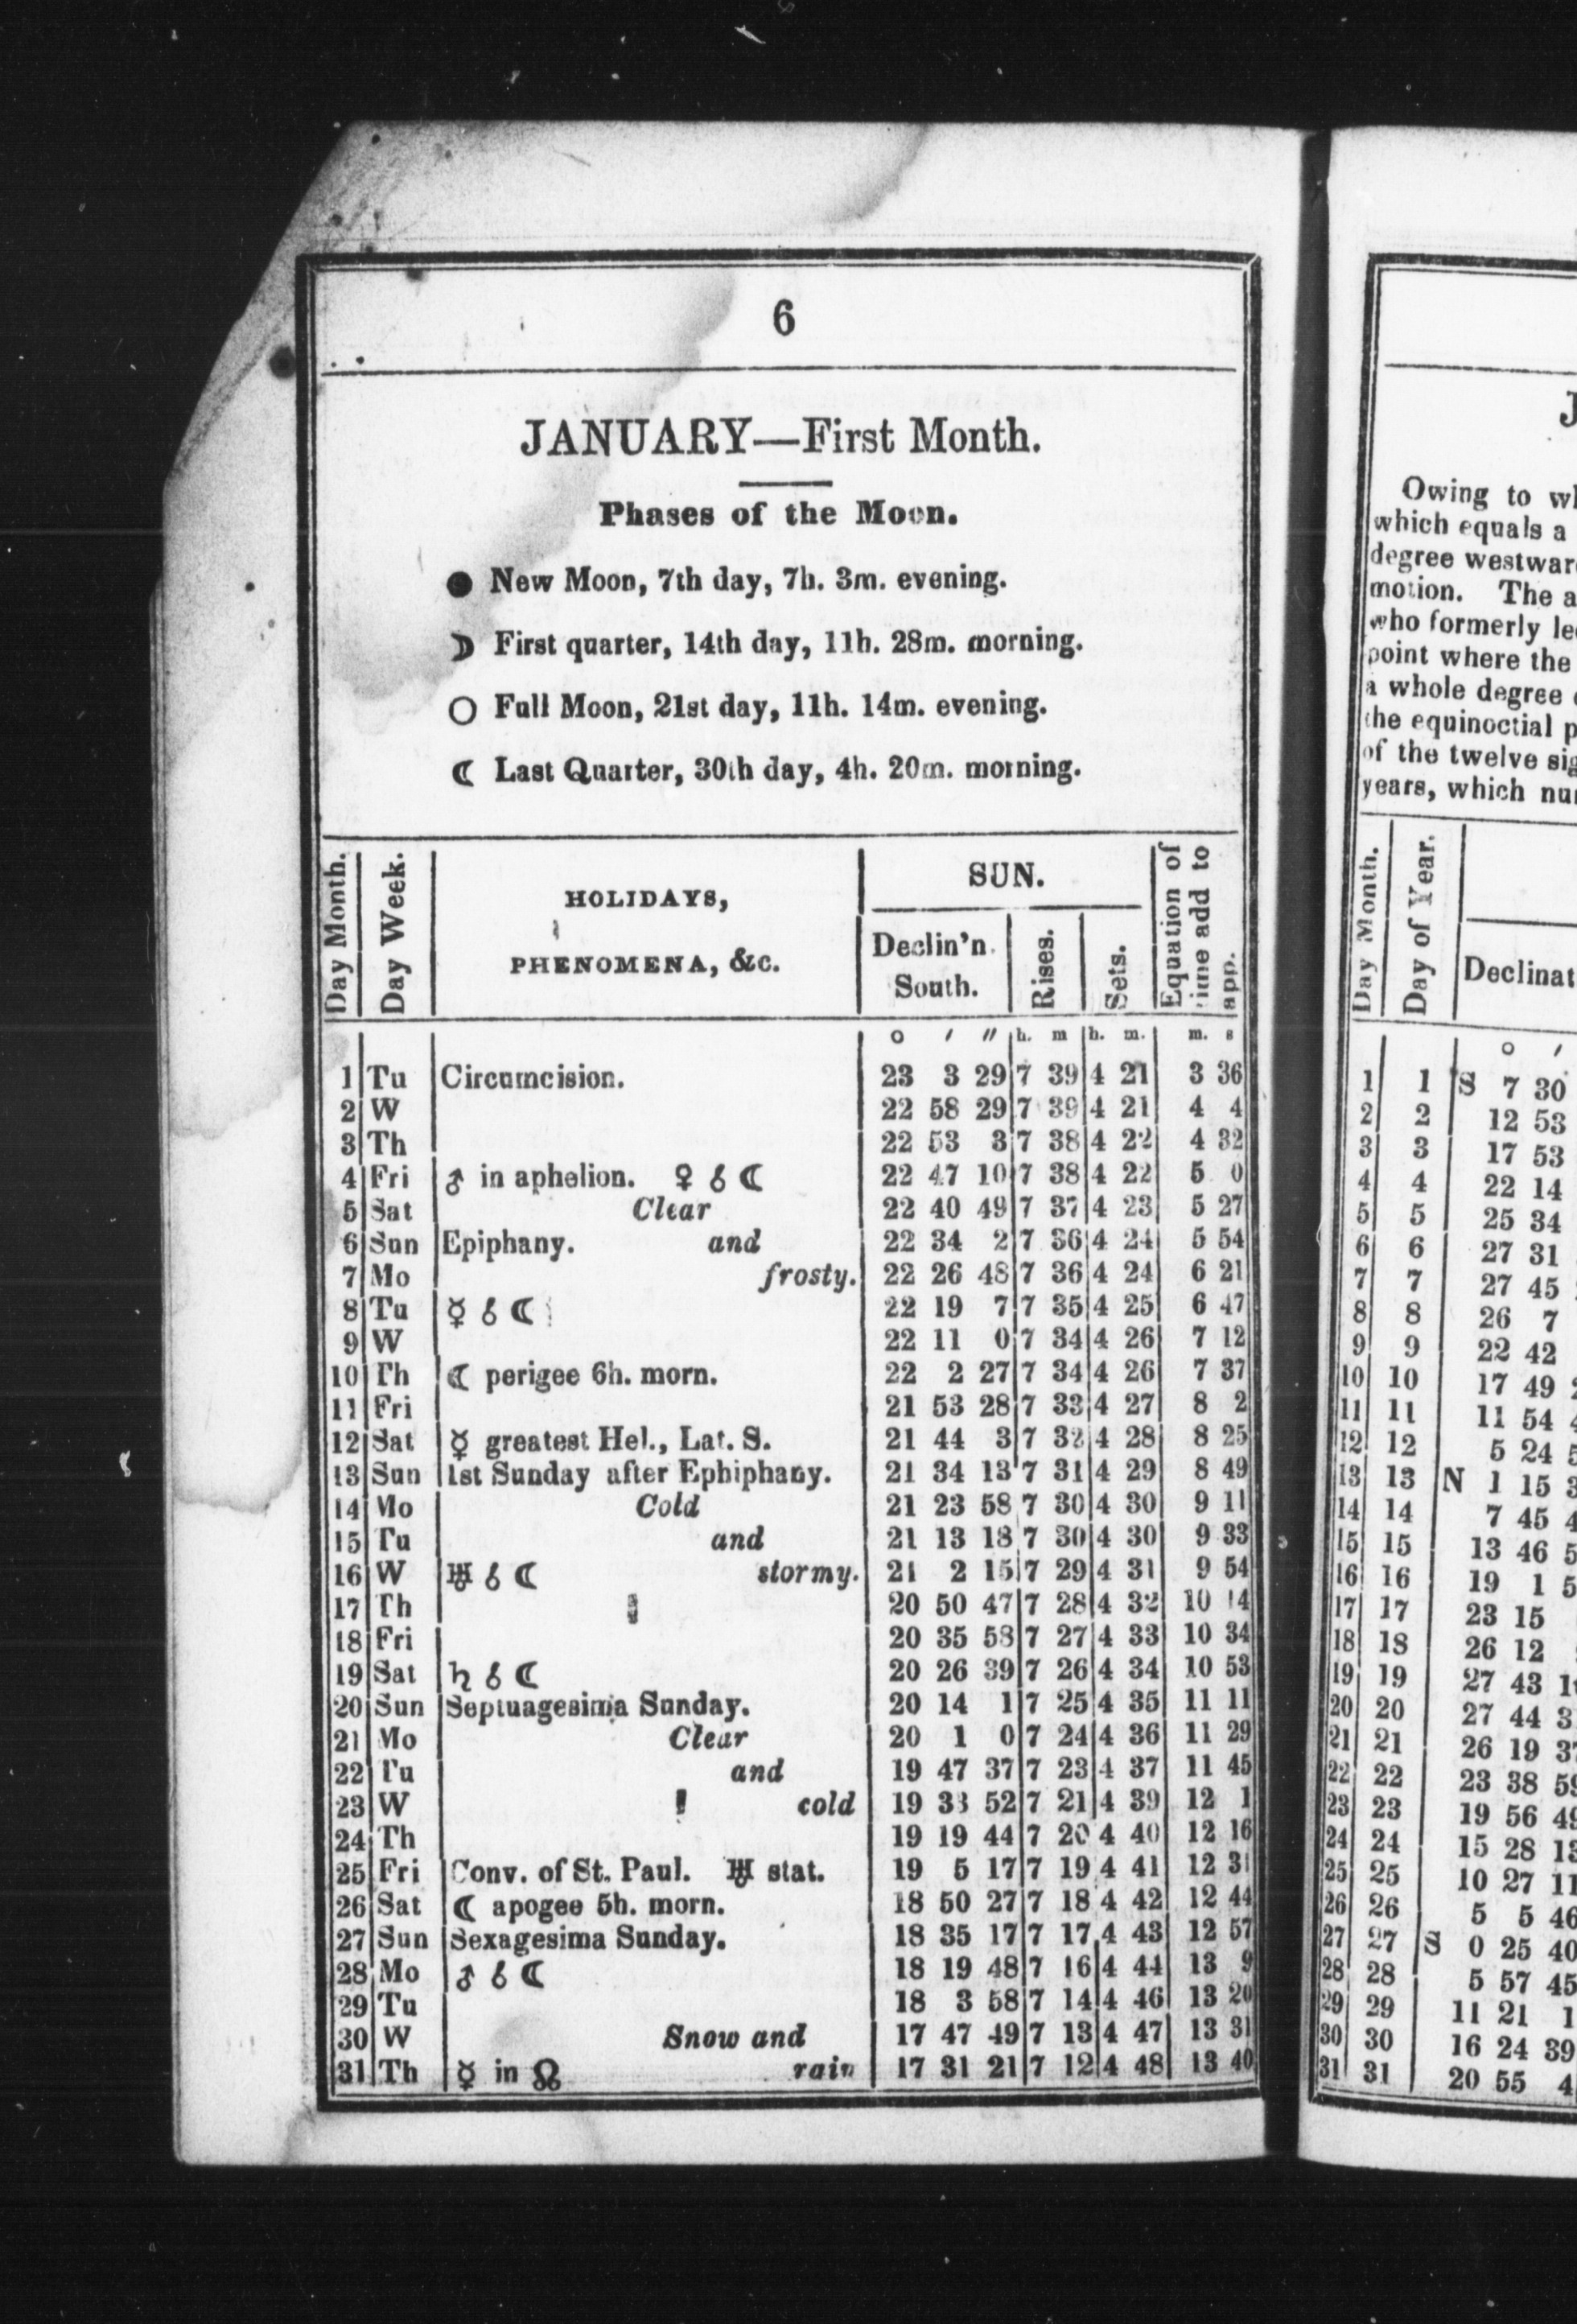 6
JANUARY—First Month.
Phases of the Moon.
● New Moon, 7th day, 7h. 3m. evening.
☽ First quarter, 14th day, 11h. 28m. morning.
○ Full Moon, 21st day, 11h. 14m. evening.
☾ Last Quarter, 30th day, 4h. 20m. morning.
Day Month. Day Week. HOLIDAYS, PHENOMENA, &c. SUN. Declin'n South. Rises. Sets. Equation of time add to app.
o ′ ″ h. m h. m. m. s
1 Tu Circumcision. 23 3 29 7 39 4 21 3 36
2 W 22 58 29 7 39 4 21 4 4
3 Th 22 53 3 7 38 4 22 4 32
4 Fri ♂ in aphelion. ♀ ☌ ☾ 22 47 10 7 38 4 22 5 0
5 Sat Clear 22 40 49 7 37 4 23 5 27
6 Sun Epiphany. and 22 34 2 7 36 4 24 5 54
7 Mo frosty. 22 26 48 7 36 4 24 6 21
8 Tu ☿ ☌ ☾ 22 19 7 7 35 4 25 6 47
9 W 22 11 0 7 34 4 26 7 12
10 Th ☾ perigee 6h. morn. 22 2 27 7 34 4 26 7 37
11 Fri 21 53 28 7 33 4 27 8 2
12 Sat ☿ greatest Hel., Lat. S. 21 44 3 7 32 4 28 8 25
13 Sun 1st Sunday after Ephiphany. 21 34 13 7 31 4 29 8 49
14 Mo Cold 21 23 58 7 30 4 30 9 11
15 Tu and 21 13 18 7 30 4 30 9 33
16 W ♅ ☌ ☾ stormy. 21 2 15 7 29 4 31 9 54
17 Th 20 50 47 7 28 4 32 10 14
18 Fri 20 35 58 7 27 4 33 10 34
19 Sat ♄ ☌ ☾ 20 26 39 7 26 4 34 10 53
20 Sun Septuagesima Sunday. 20 14 1 7 25 4 35 11 11
21 Mo Clear 20 1 0 7 24 4 36 11 29
22 Tu and 19 47 37 7 23 4 37 11 45
23 W cold 19 33 52 7 21 4 39 12 1
24 Th 19 19 44 7 20 4 40 12 16
25 Fri Conv. of St. Paul. ♅ stat. 19 5 17 7 19 4 41 12 31
26 Sat ☾ apogee 5h. morn. 18 50 27 7 18 4 42 12 44
27 Sun Sexagesima Sunday. 18 35 17 7 17 4 43 12 57
28 Mo ♂ ☌ ☾ 18 19 48 7 16 4 44 13 9
29 Tu 18 3 58 7 14 4 46 13 20
30 W Snow and 17 47 49 7 13 4 47 13 31
31 Th ☿ in ☊ rain 17 31 21 7 12 4 48 13 40
J
Owing to
which equals a
degree
motion. The
who formerly
point where the
a whole degree
the equinoctial
of the twelve
years, which
Day Month. Day of Year.
o ′
1 1 S 7 30
2 2 12 53
3 3 17 53
4 4 22 14
5 5 25 34
6 6 27 31
7 7 27 45
8 8 26 7
9 9 22 42
10 10 17 49
11 11 11 54
12 12 5 24
13 13 N 1 15
14 14 7 45
15 15 13 46
16 16 19 1
17 17 23 15
18 18 26 12
19 19 27 43
20 20 27 44
21 21 26 19 37
22 22 23 38 59
23 23 19 56 49
24 24 15 28 13
25 25 10 27 11
26 26 5 5 46
27 27 S 0 25 40
28 28 5 57 45
29 29 11 21
30 30 16 24 39
31 31 20 55